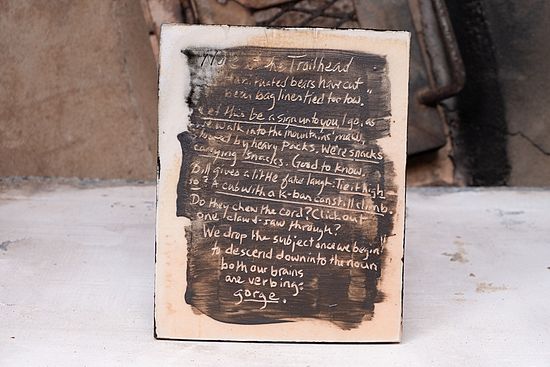 at the Trailhead
"Habituated bears have cut
bear bag lines tied too low."
Let this be a sign unto you, I go, as
we walk into the mountains' maw,
slowed by heavy packs. We're snacks
carrying snacks. Good to know.
Bill gives a little fake laugh. Tie it high
so? A cub with a k-bar can still climb.
Do they chew the cord? Click out
one claw & saw through?
We drop the subject once we begin
to descend down into the noun
both our brains
are verbing:
gorge.